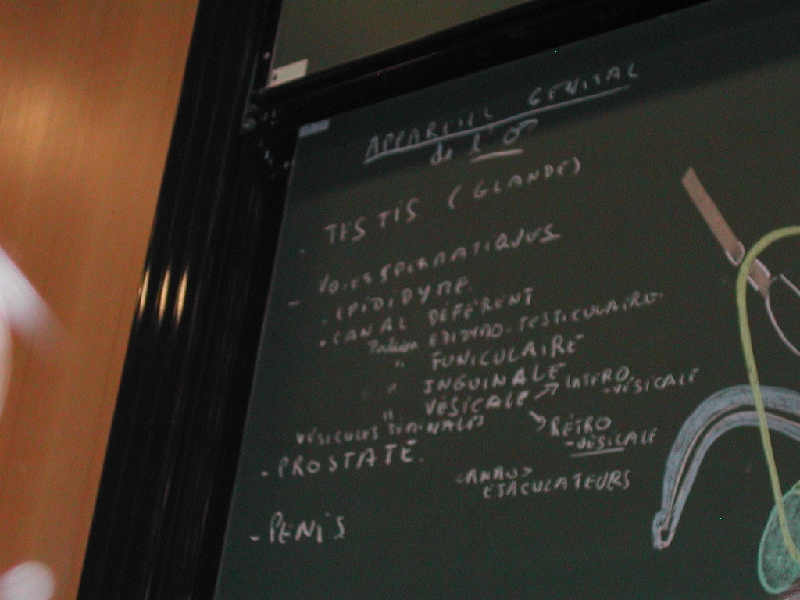 APPAREIL GENITAL
de l'♂
- TESTIS (GLANDE)
- VOIES SPERMATIQUES
. EPIDIDYME
. CANAL DEFERENT
Portion EPIDYMO-TESTICULAIRE
" FUNICULAIRE
" INGUINALE
" VÉSICALE → INTERO-VÉSICALE
→ RÉTRO-VÉSICALE
VÉSICULES SÉMINALES
- PROSTATE
CANAUX EJACULATEURS
- PENIS